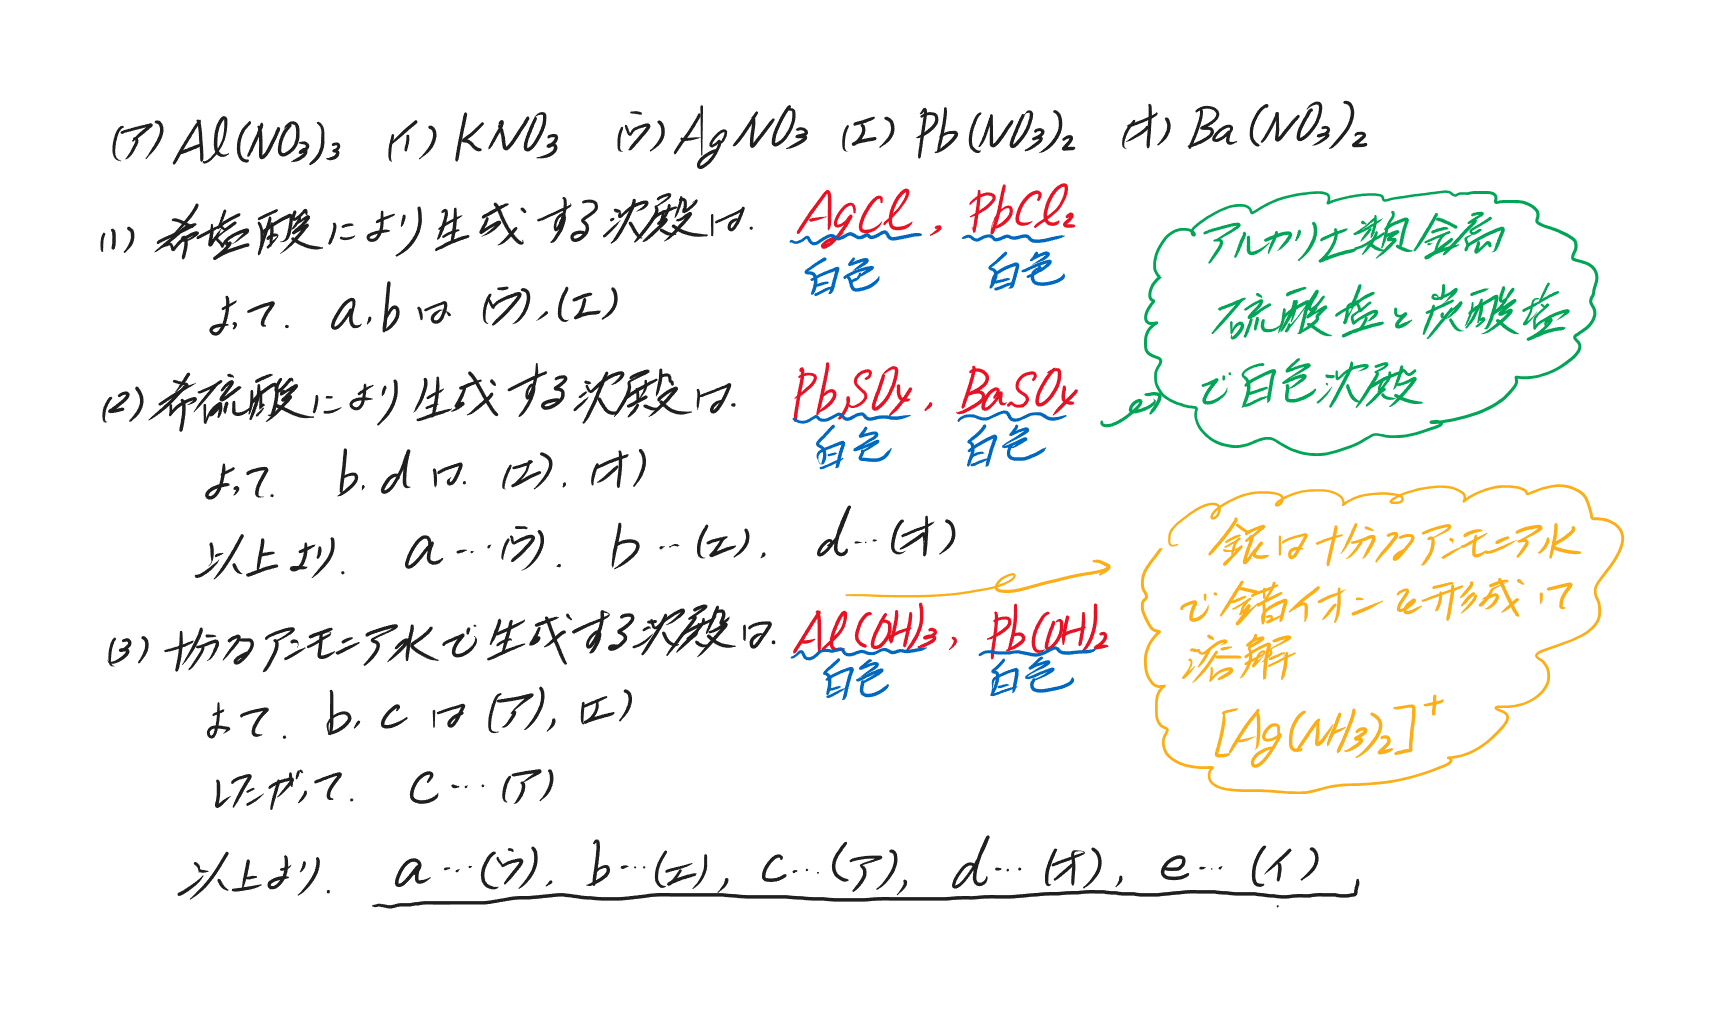 (ア) Al(NO3)3 (イ) KNO3 (ウ) AgNO3 (エ) Pb(NO3)2 (オ) Ba(NO3)2
(1) 希塩酸により生成する沈殿は. AgCl, PbCl2
白色 白色
よって. a, b は (ウ), (エ)
(2) 希硫酸により生成する沈殿は. PbSO4, BaSO4
白色 白色
よって. b. d は. (エ). (オ)
以上より. a…(ウ). b…(エ). d…(オ)
(3) 十分なアンモニア水で生成する沈殿は. Al(OH)3, Pb(OH)2
白色 白色
よって. b. c は (ア), (エ)
したがって. c…(ア)
以上より. a…(ウ). b…(エ), c…(ア), d…(オ), e…(イ)
アルカリ土類金属
硫酸塩と炭酸塩
で白色沈殿
銀は十分なアンモニア水
で錯イオンを形成して
溶解
[Ag(NH3)2]+